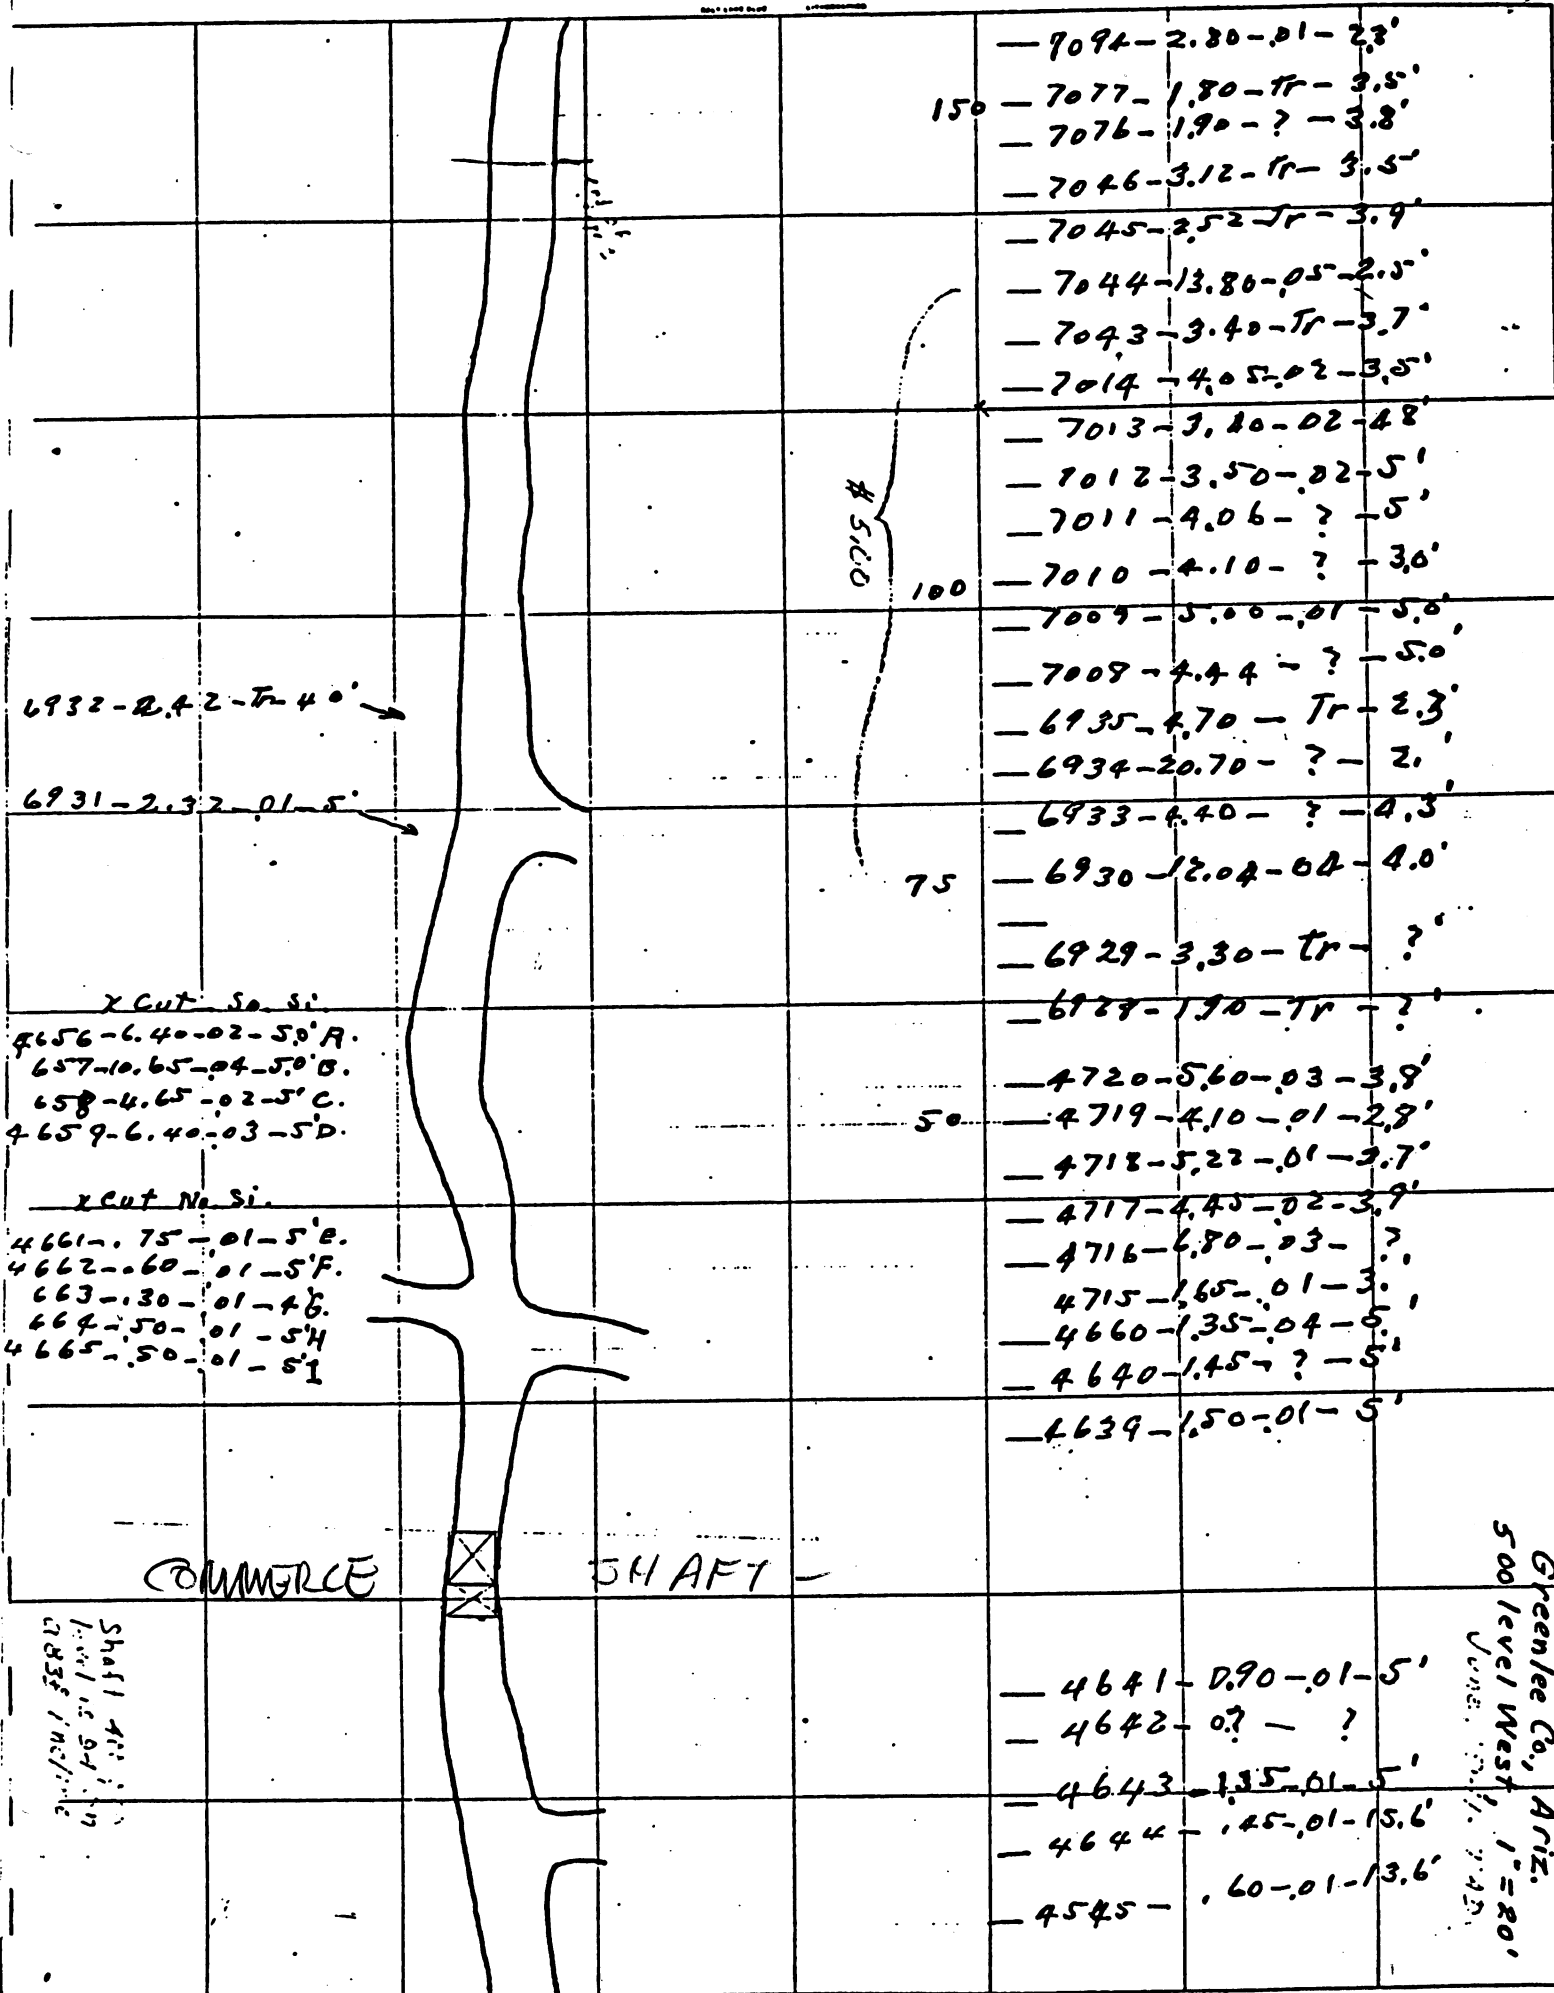 7094-2.80-.01-2.8'
150 — 7077-1.80-Tr-3.5'
7076-1.90-?-3.8'
7046-3.12-Tr-3.5'
7045-2.52-Tr-3.9'
7044-13.80-.05-2.5'
7043-3.40-Tr-3.7'
7014-4.05-.02-3.5'
7013-3.40-.02-4.8'
7012-3.50-.02-5'
7011-4.06-?-5'
100 — 7010-4.10-?-3.0'
7009-5.00-.01-5.0'
7008-4.44-?-5.0'
6935-4.70-Tr-2.3'
6934-20.70-?-2.'
6933-4.40-?-4.3'
75 — 6930-12.04-.04-4.0'
6929-3.30-tr-?'
6928-1.90-Tr-?'
4720-5.60-.03-3.8'
50 — 4719-4.10-.01-2.8'
4718-5.22-.01-3.7'
4717-4.45-.02-3.9'
4716-6.80-.03-?
4715-1.65-.01-3.
4660-1.35-.04-5.'
4640-1.45-?-5'
4639-1.50-.01-5'
4641-0.90-.01-5'
4642-0.?-?
4643-1.35-.01-5'
4644-.45-.01-15.6'
4545-.60-.01-13.6'
6932-2.42-Tr-4.0'
6931-2.32-.01-5'
X Cut So. Si.
4656-6.40-.02-5.0' A.
657-10.65-.04-5.0' B.
658-4.65-.02-5' C.
4659-6.40-.03-5' D.
X Cut No. Si.
4661-.75-.01-5' E.
4662-.60-.01-5' F.
663-.30-.01-4' G.
664-.50-.01-5' H
4665-.50-.01-5' I
COMMERCE SHAFT
Shaft
Greenlee Co., Ariz.
500 level West, 1"=20'
June